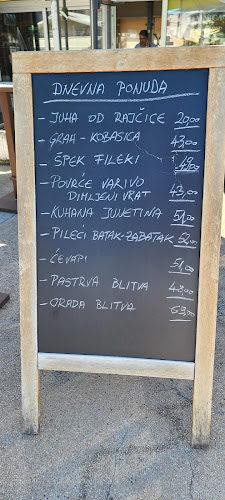 DNEVNA PONUDA
- JUHA OD RAJČICE 20,00
- GRAH - KOBASICA 43,00
- ŠPEK FILEKI
- POVRĆE VARIVO
DIMLJENI VRAT 43,00
- KUHANA JUNETINA 51,00
- PILECI BATAK-ZABATAK 52,00
- ĆEVAPI 51,00
- PASTRVA BLITVA 48,00
- ORADA BLITVA 63,00